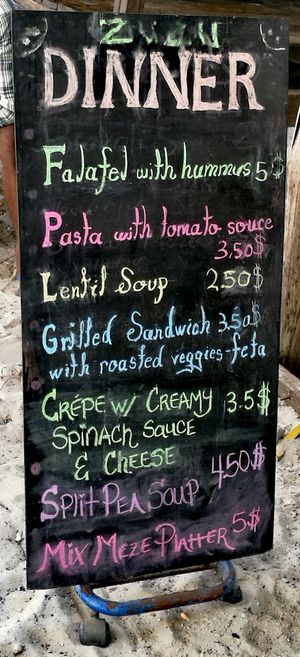 DINNER
Falafel with hummus 5$
Pasta with tomato souce
3.50$
Lentil Soup 2.50$
Grilled Sandwich 3.50$
with roasted veggies-feta
CRÉPE W/ CREAMY 3.5$
SPINACH SAUCE
& CHEESE
SPLIT PEA SOUP 4.50$
MIX MEZE PLATTER 5$